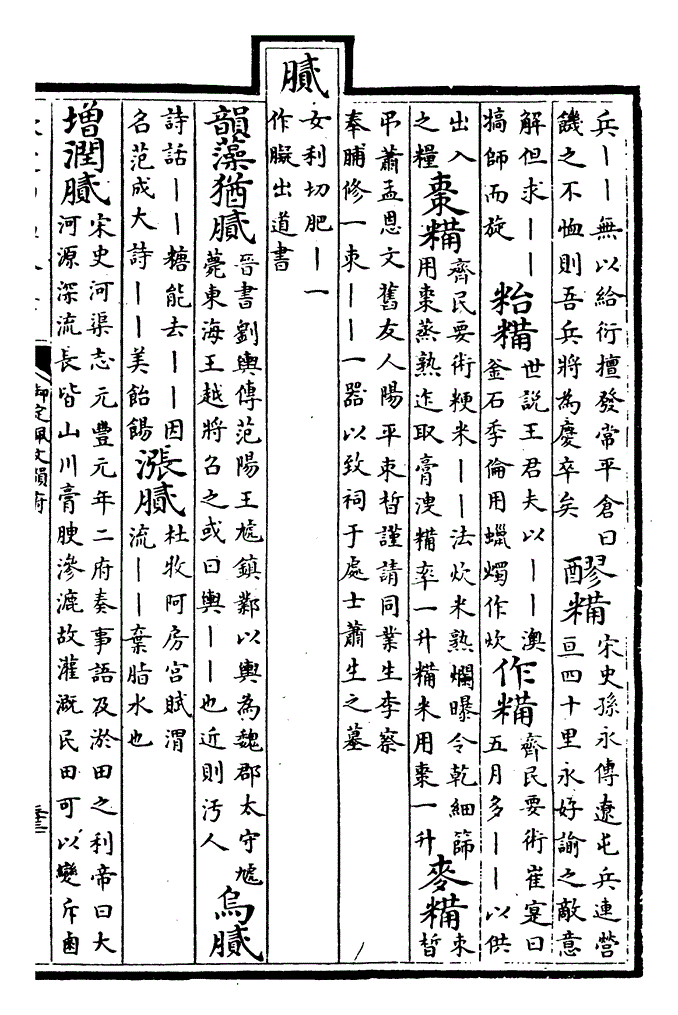 兵丨丨無以給衍擅發常平倉曰
饑之不恤則吾兵將為慶卒矣
醪糒
宋史孫永傳遼屯兵連營
亘四十里永好諭之敵意
解但求丨丨
犒師而旋
𥹋糒
世說王君夫以丨丨澳
釜石季倫用蠟燭作炊
作糒
齊民要術崔寔曰
五月多丨丨以供
出入
之糧
棗糒
齊民要術粳米丨丨法炊米熟爛曝令乾細篩
用棗蒸熟迮取膏溲糒率一升糒米用棗一升
麥糒
束
晳
弔蕭孟恩文舊友人陽平束晳謹請同業生李察
奉脯修一束丨丨一器以致祠于處士蕭生之墓
膩
女利切肥丨一
作出道書
韻藻猶膩
晉書劉輿傳范陽王虓鎮鄴以輿為魏郡太守虓
薨東海王越將召之或曰輿丨丨也近則汚人
烏膩
詩話丨丨糖能去丨丨因
名范成大詩丨丨美飴餳
漲膩
杜牧阿房宮賦渭
流丨丨棄脂水也
增潤膩
宋史河渠志元豐元年二府奏事語及淤田之利帝曰大
河源深流長皆山川膏腴滲漉故灌溉民田可以變斥鹵
御定佩文韻府